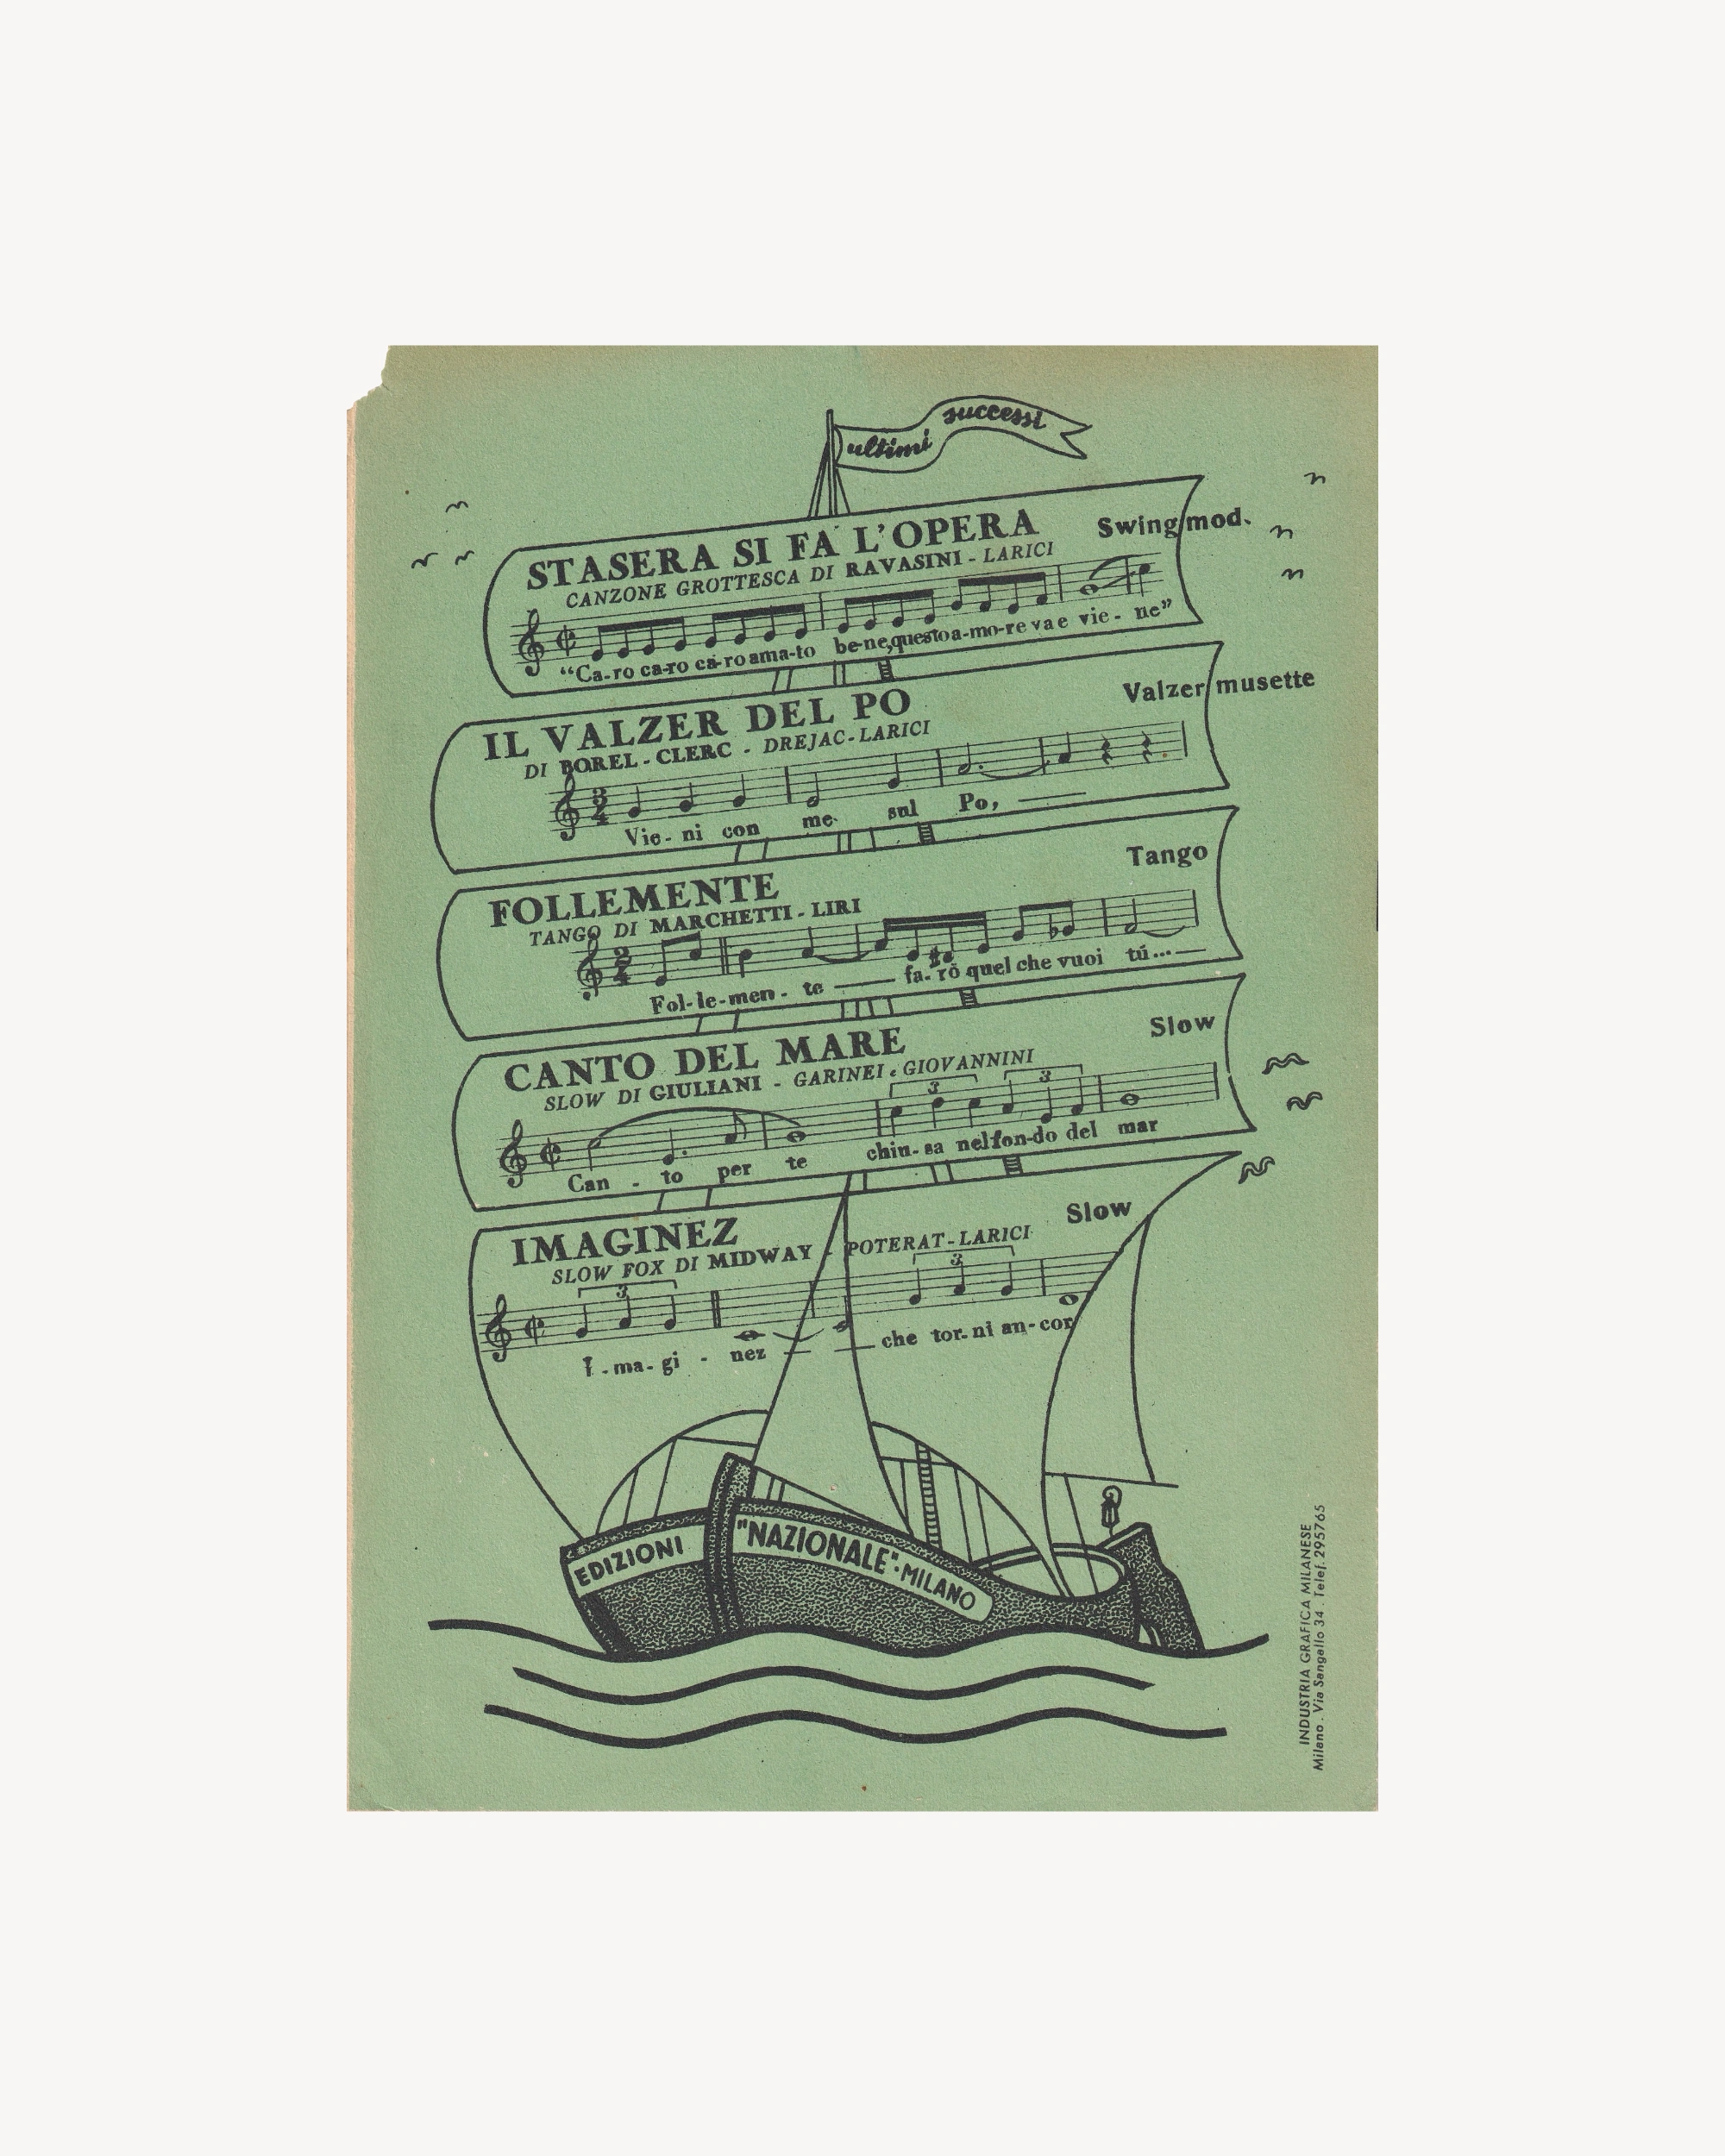 ultimi successi
STASERA SI FA L'OPERA
Swing mod.
CANZONE GROTTESCA DI RAVASINI - LARICI
“Ca-ro ca-ro ca-ro ama-to be-ne, questo a-mo-re va e vie - ne”
IL VALZER DEL PO
Valzer musette
DI BOREL - CLERC - DREJAC - LARICI
3
4
Vie - ni con me sul Po,
FOLLEMENTE
Tango
TANGO DI MARCHETTI - LIRI
2
4
Fol - le - men - te fa - rò quel che vuoi tú...
CANTO DEL MARE
Slow
SLOW DI GIULIANI - GARINEI e GIOVANNINI
3 3
Can - to per te chiu - sa nel fon - do del mar
IMAGINEZ
Slow
SLOW FOX DI MIDWAY - POTERAT - LARICI
3 3
I - ma - gi - nez che tor - ni an - cor
EDIZIONI "NAZIONALE" · MILANO
INDUSTRIA GRAFICA MILANESE
Milano . Via Sangallo 34 . Telef. 295765